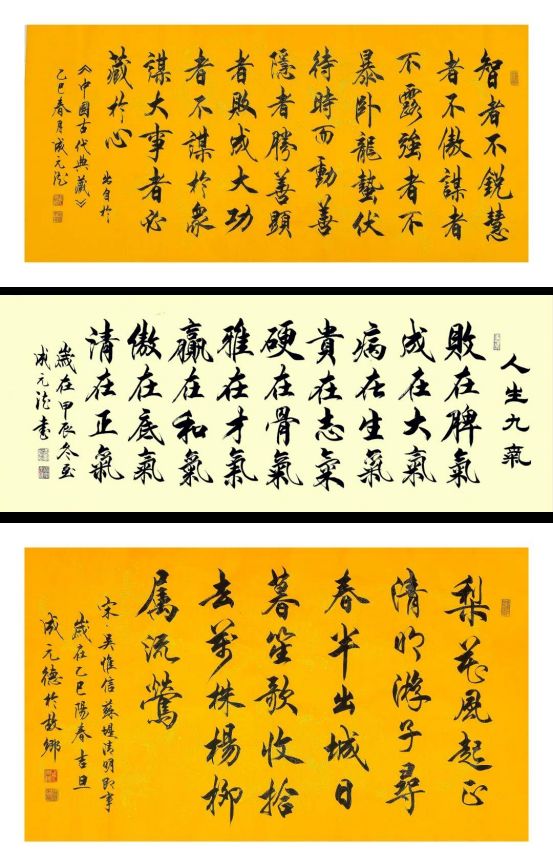 智者不銳慧
者不傲謀者
不露強者不
暴卧龍蟄伏
待時而動善
隱者勝善顯
者敗成大功
者不謀於衆
謀大事者必
藏於心
出自於
《中國古代典藏》
乙巳春月成元德
人生九氣
敗在脾氣
成在大氣
病在生氣
貴在志氣
硬在骨氣
雅在才氣
贏在和氣
傲在底氣
清在正氣
歲在甲辰冬至
成元德書
梨花風起正
清明游子尋
春半出城日
暮笙歌收拾
去萬株楊柳
属流鶯
宋·吳惟信蘇堤清明即事
歲在乙巳陽春吉旦
成元德於故鄉